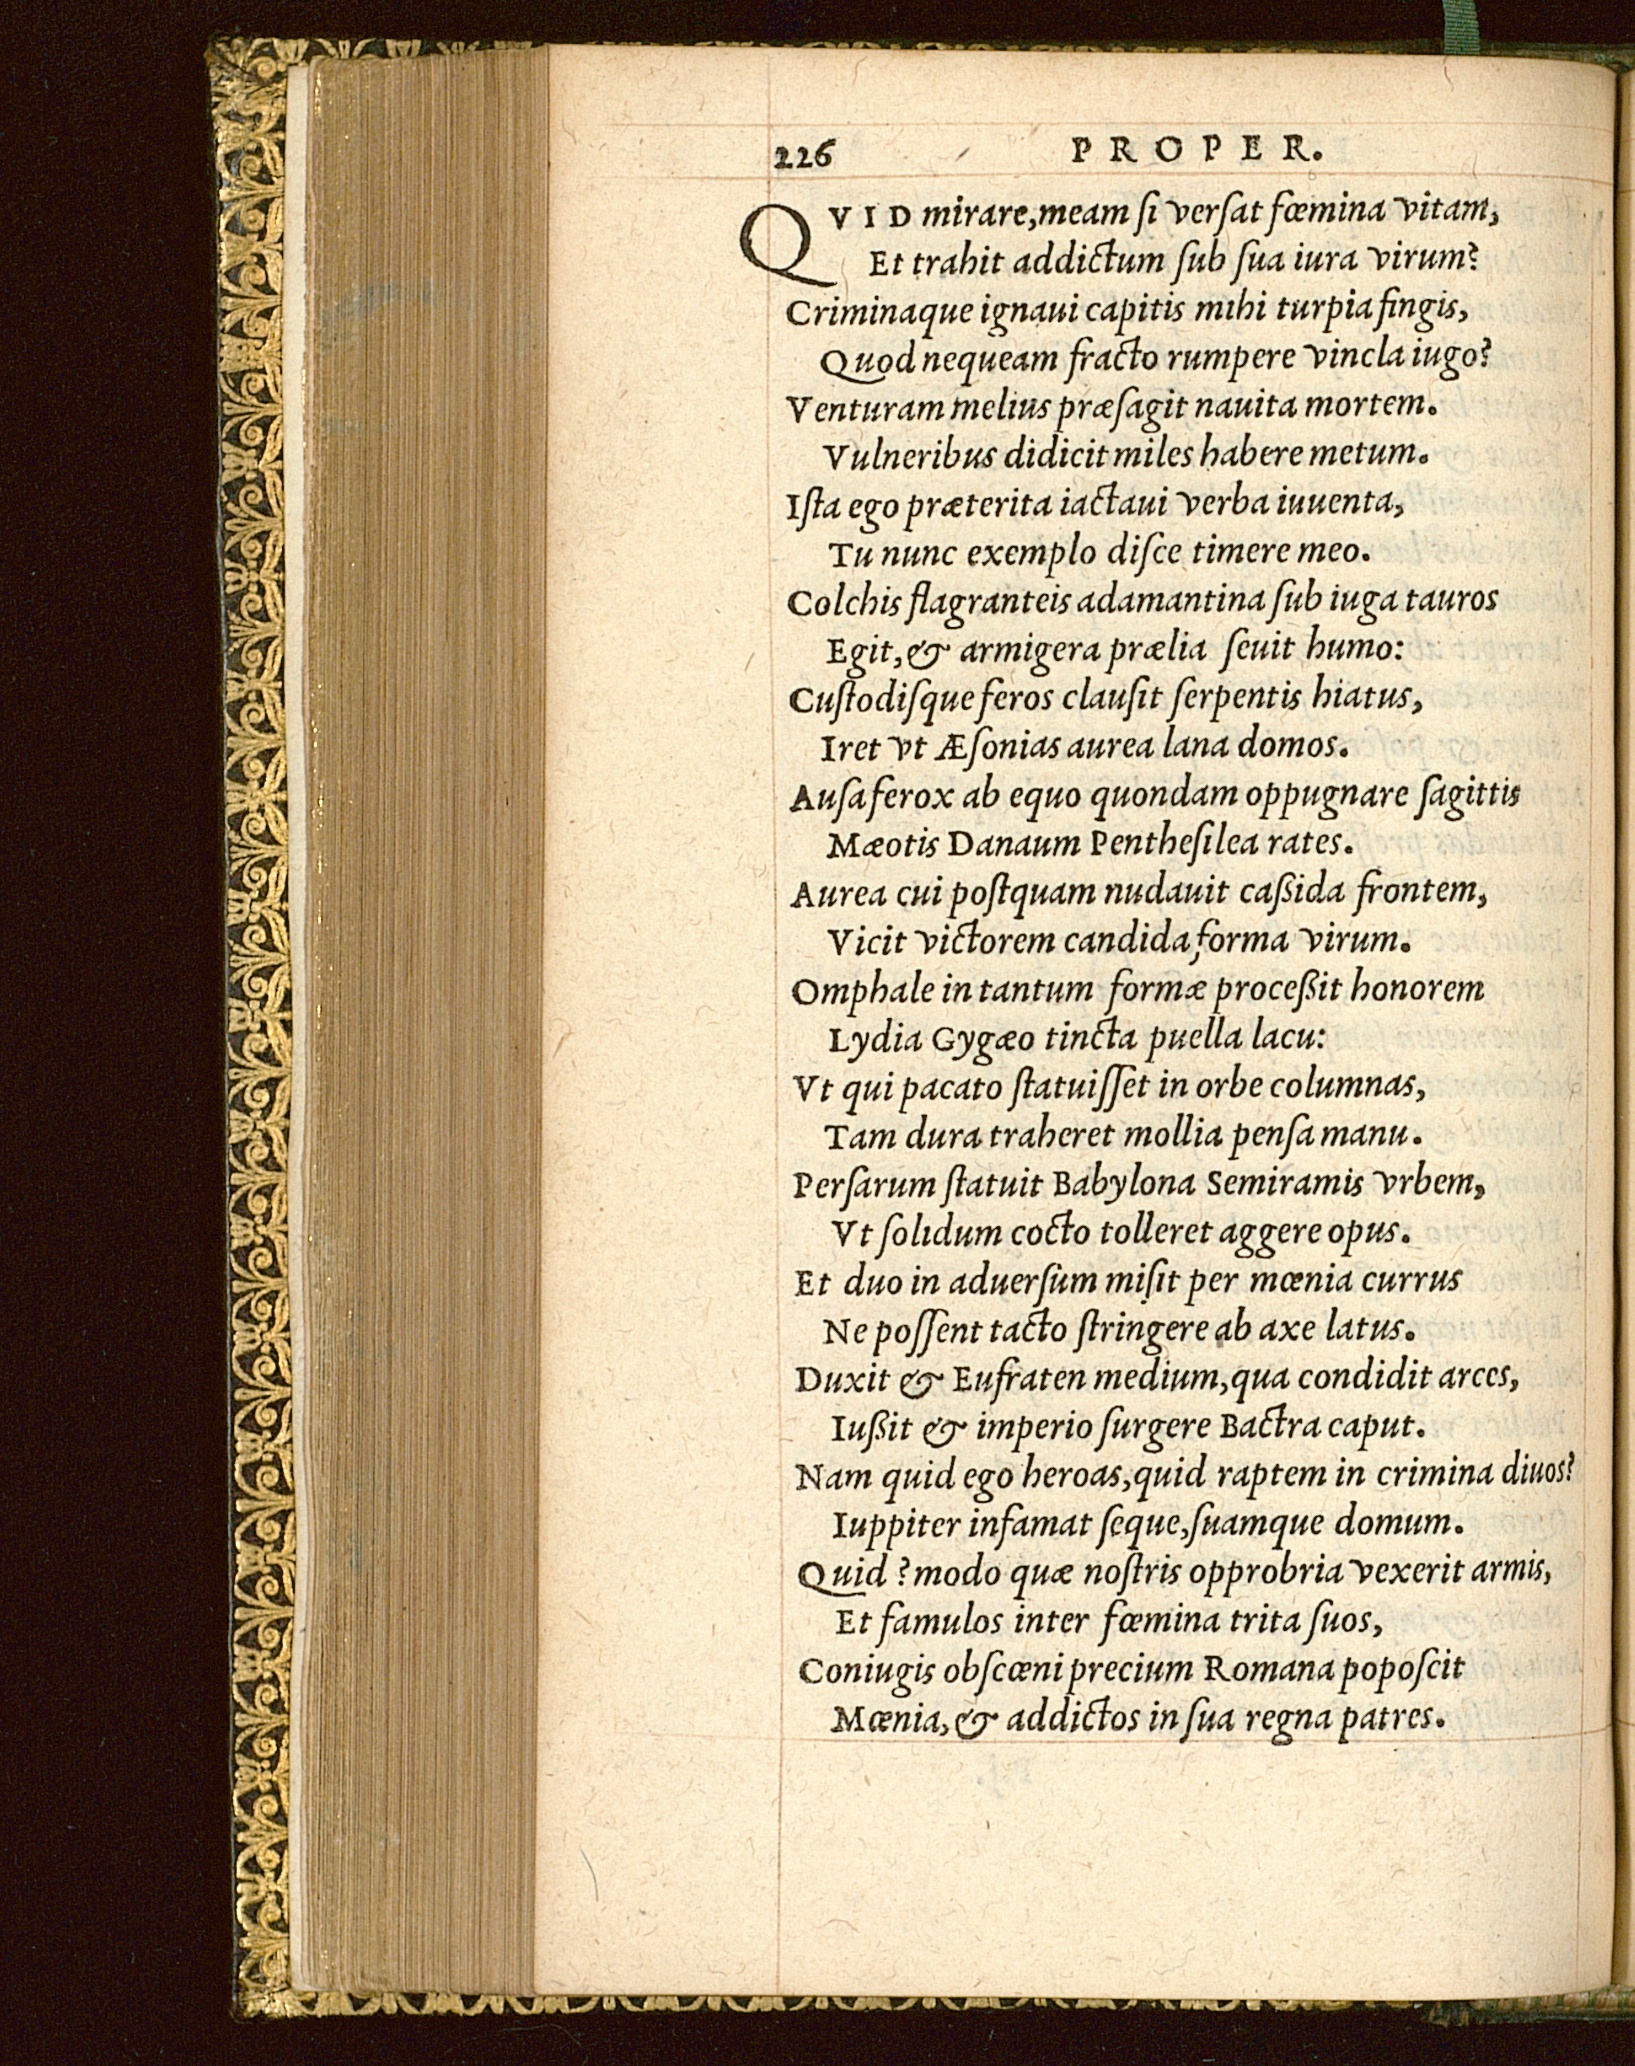 226 PROPER.
QVID mirare,meam ſi verſat fœmina vitam,
Et trahit addictum ſub ſua iura virum?
Criminaque ignaui capitis mihi turpia fingis,
Quod nequeam fracto rumpere vincla iugo?
Venturam melius præſagit nauita mortem.
Vulneribus didicit miles habere metum.
Iſta ego præterita iactaui verba iuuenta,
Tu nunc exemplo diſce timere meo.
Colchis flagranteis adamantina ſub iuga tauros
Egit,& armigera prælia ſeuit humo:
Cuſtodiſque feros clauſit ſerpentis hiatus,
Iret vt Æſonias aurea lana domos.
Auſa ferox ab equo quondam oppugnare ſagittis
Mæotis Danaum Pentheſilea rates.
Aurea cui poſtquam nudauit caßida frontem,
Vicit victorem candida forma virum.
Omphale in tantum formæ proceßit honorem
Lydia Gygæo tincta puella lacu:
Vt qui pacato ſtatuiſſet in orbe columnas,
Tam dura traheret mollia penſa manu.
Perſarum ſtatuit Babylona Semiramis vrbem,
Vt ſolidum cocto tolleret aggere opus.
Et duo in aduerſùm miſit per mœnia currus
Ne poſſent tacto ſtringere ab axe latus.
Duxit & Eufraten medium,qua condidit arces,
Iußit & imperio ſurgere Bactra caput.
Nam quid ego heroas,quid raptem in crimina diuos?
Iuppiter infamat ſeque,ſuamque domum.
Quid ?modo quæ noſtris opprobria vexerit armis,
Et famulos inter fœmina trita ſuos,
Coniugis obſcœni precium Romana popoſcit
Mœnia,& addictos in ſua regna patres.